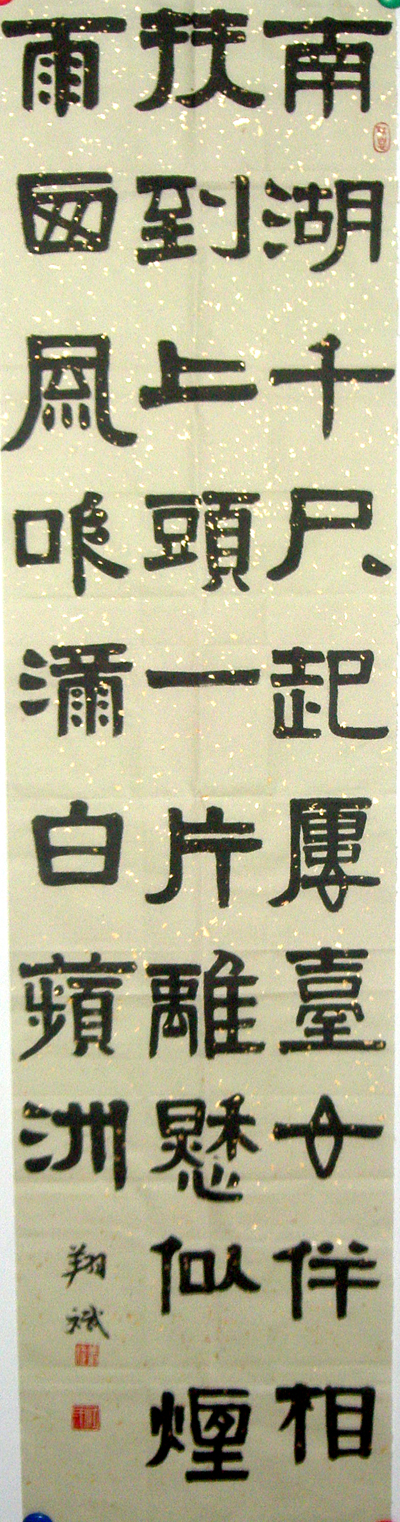 南湖千尺起廔臺女伴相
扶到上頭一片離愁似煙
雨西風吹滿白蘋洲
翔斌